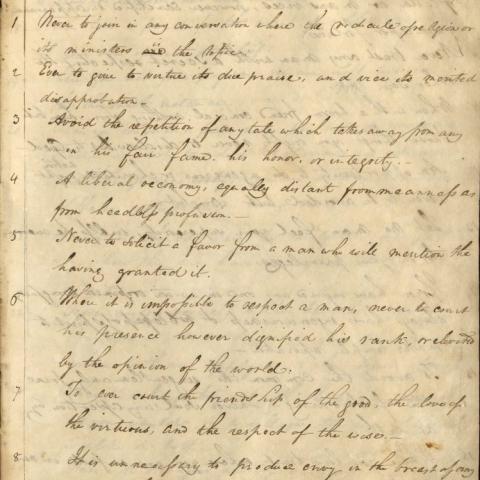 1 Never to join in any conversation where the ridicule of religion or
its ministers the topic
2 Ever to give to virtue its due praise, and vice its merited
disapprobation -
3 Avoid the repetition of any tale which takes away from any
his fair fame, his honor, or integrity. -
4 A liberal oeconomy, equally distant from meanness as
from heedless profusion. -
5 Never to solicit a favor from a man who will mention the
having granted it.
6 When it is impossible to respect a man, never to court
his presence however dignified his rank, or elevated
by the opinion of the world.
7 To ever court the friendship of the good, the love of
the virtuous, and the respect of the wise. -
8 It is unnecessary to produce envy in the breast of any